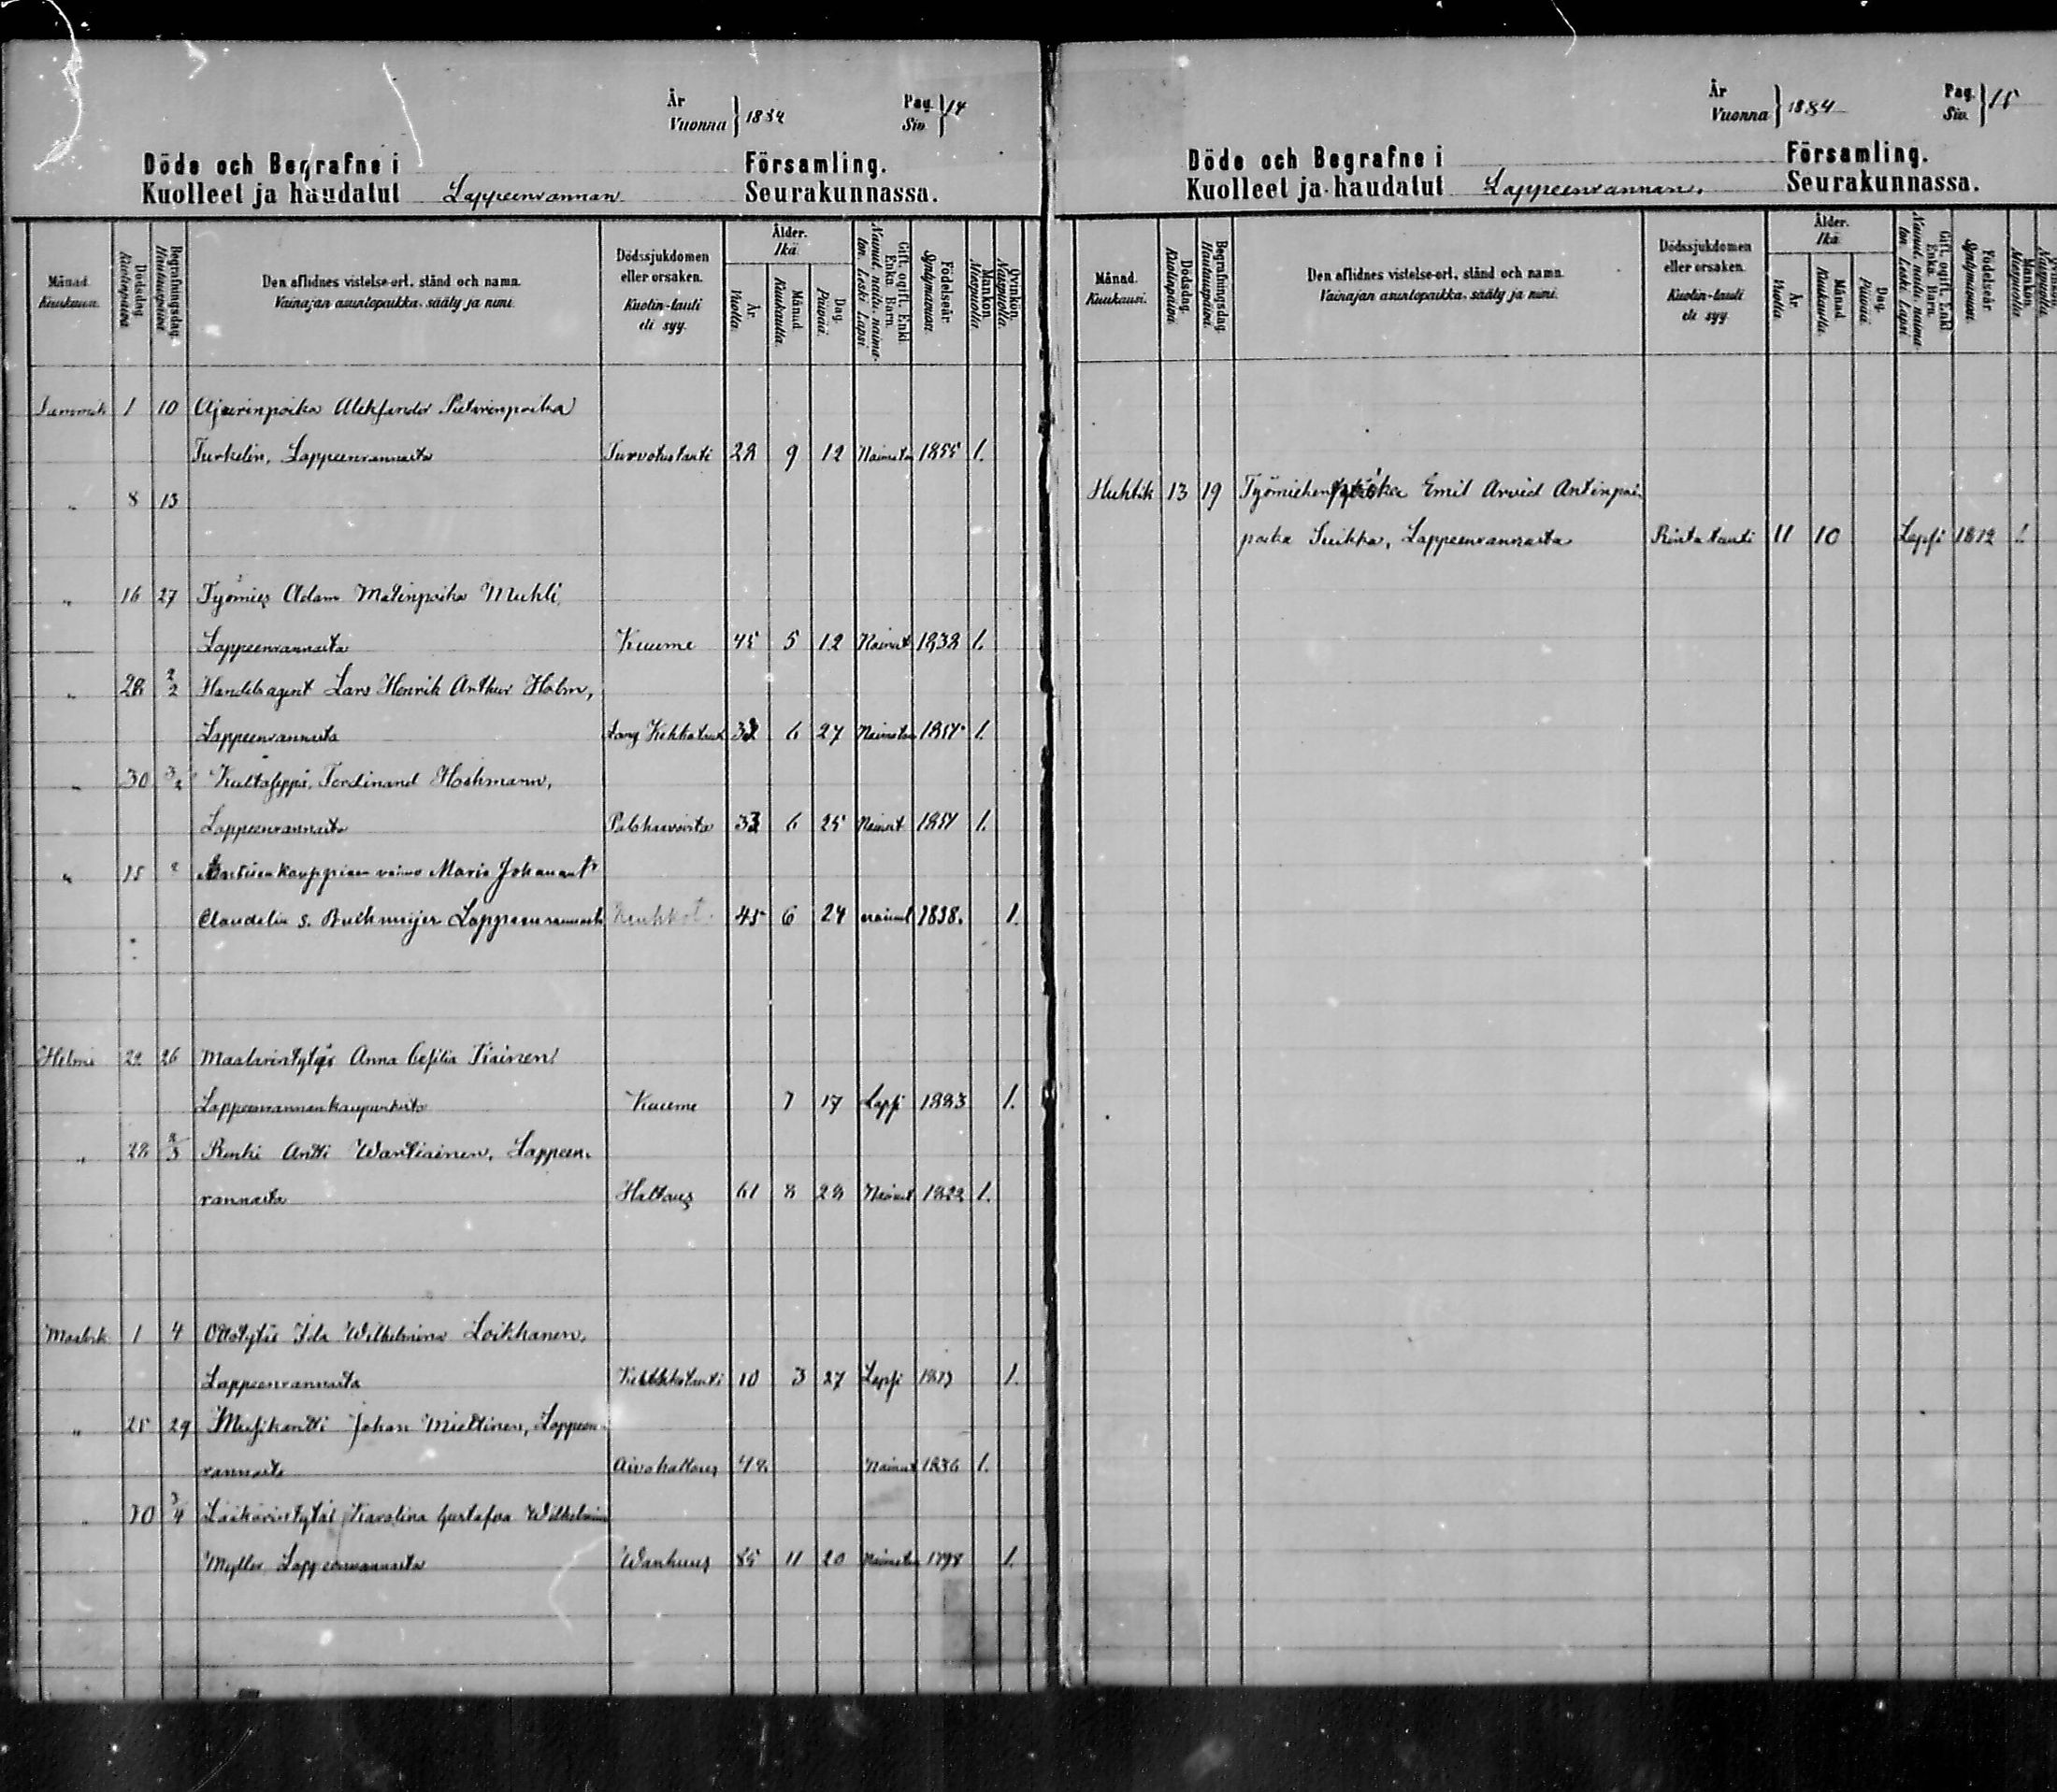 År
Vuonna } 1884
Pag.
Siv. } 14
Döde och Begrafne i Församling.
Kuolleet ja haudatut Lappeenrannan Seurakunnassa.
Månad. Kuukausi.
Dödsdag. Kuolinpäivä.
Begrafningsdag. Hautauspäivä.
Den aflidnes vistelse-ort, stånd och namn.
Vainajan asuntopaikka, sääty ja nimi.
Dödssjukdomen eller orsaken.
Kuolin-tauti eli syy.
Ålder. Ikä.
År. Vuotta.
Månad. Kuukautta.
Dag. Päivää.
Gift, ogift, Enkl. Enka, Barn.
Nainut, naitu, naima-ton, Leski, Lapsi
Födelseår. Syntymävuosi.
Mankön. Miespuolia.
Qvinkön. Naispuolia.
Tammik 1 10 Ajurinpoika Aleksander Pietarinpoika
Turkelin, Lappeenrannasta Turvotustauti 28 9 12 Naimaton 1855 1.
" 8 13
" 16 27 Työmies Adam Matinpoika Muhli
Lappeenrannasta Kuume 45 5 12 Nainut 1838 1.
" 28 2/2 Handelsagent Lars Henrik Arthur Holm,
Lappeenrannasta 32 6 27 Naimaton 1851 1.
" 30 3/2 Kultaseppä Ferdinand Hoshmann,
Lappeenrannasta 33 6 25 Nainut 1851 1.
" 15 vaimo Maria Johanna
Claudelin s. Buchmeijer Lappeenrannasta 45 6 24 nainut 1838. 1.
Helmi 22 26 Maalarintytär Anna Cesilia Tiainen
Lappeenrannan kaupunkista Kuume 7 17 Lapsi 1883 1.
" 28 2/3 Renki Antti Wantiainen, Lappeen-
rannasta Haltaus 61 8 28 Nainut 1822 1.
Maalisk 1 4 Ottotytär Ida Wilhelmina Loikkanen,
Lappeenrannasta Keuhkotauti 10 3 27 Lapsi 1873 1.
" 25 29 Musikantti Johan Miettinen, Lappeen-
rannasta Aivohaltaus 48 Nainut 1836 1.
" 30 3/4 Lääkärintytär Karolina Gustafva Wilhelmina
Myller Lappeenrannasta Wanhuus 85 11 20 Naimaton 1798 1.
År
Vuonna } 1884
Pag.
Siv. } 15
Döde och Begrafne i Församling.
Kuolleet ja haudatut Lappeenrannan. Seurakunnassa.
Månad. Kuukausi.
Dödsdag. Kuolinpäivä.
Begrafningsdag. Hautauspäivä.
Den aflidnes vistelse-ort, stånd och namn.
Vainajan asuntopaikka, sääty ja nimi.
Dödssjukdomen eller orsaken.
Kuolin-tauti eli syy.
Ålder. Ikä.
År. Vuotta.
Månad. Kuukautta.
Dag. Päivää.
Gift, ogift, Enkl. Enka, Barn.
Nainut, naitu, naima-ton, Leski, Lapsi
Födelseår. Syntymävuosi.
Mankön. Miespuolia.
Qvinkön. Naispuolia.
Huhtik 13 19 Työmiehen poika Emil Arvid Antinpoi-
poika Suikka, Lappeenrannasta Rintatauti 11 10 Lapsi 1872 1.